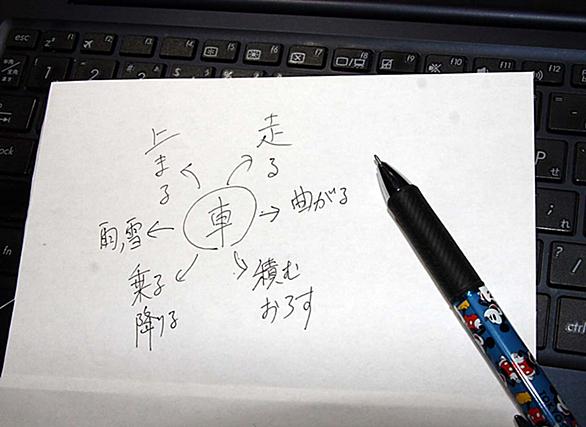 止まる
走る
車
曲がる
雨,雪
乗る
降りる
積む
おろす
esc
f1
f2
f3
f4
f5
f6
f7
f8
f9
f10
f11
f12
1
2
fn
P
せ
れ
ctrl